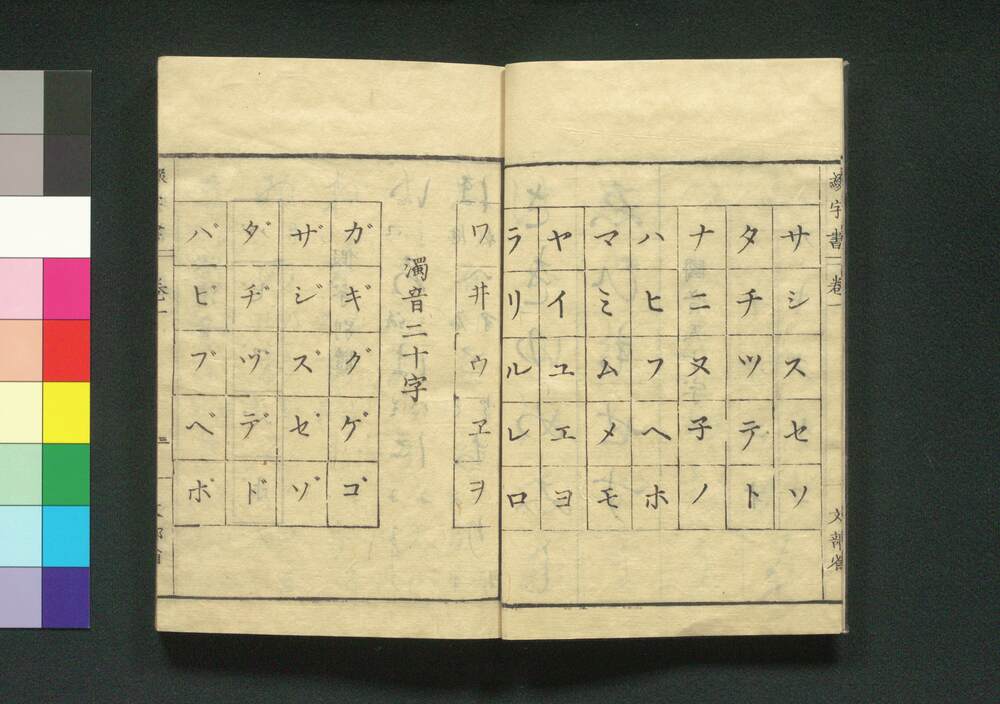 字書 卷一
文部省
サシスセソ
タチツテト
ナニヌ子ノ
ハヒフヘホ
マミムメモ
ヤイユエヨ
ラリルレロ
ワ井ウヱヲ
濁音二十字
ガギグゲゴ
ザジズゼゾ
ダヂヅデド
バビブベボ